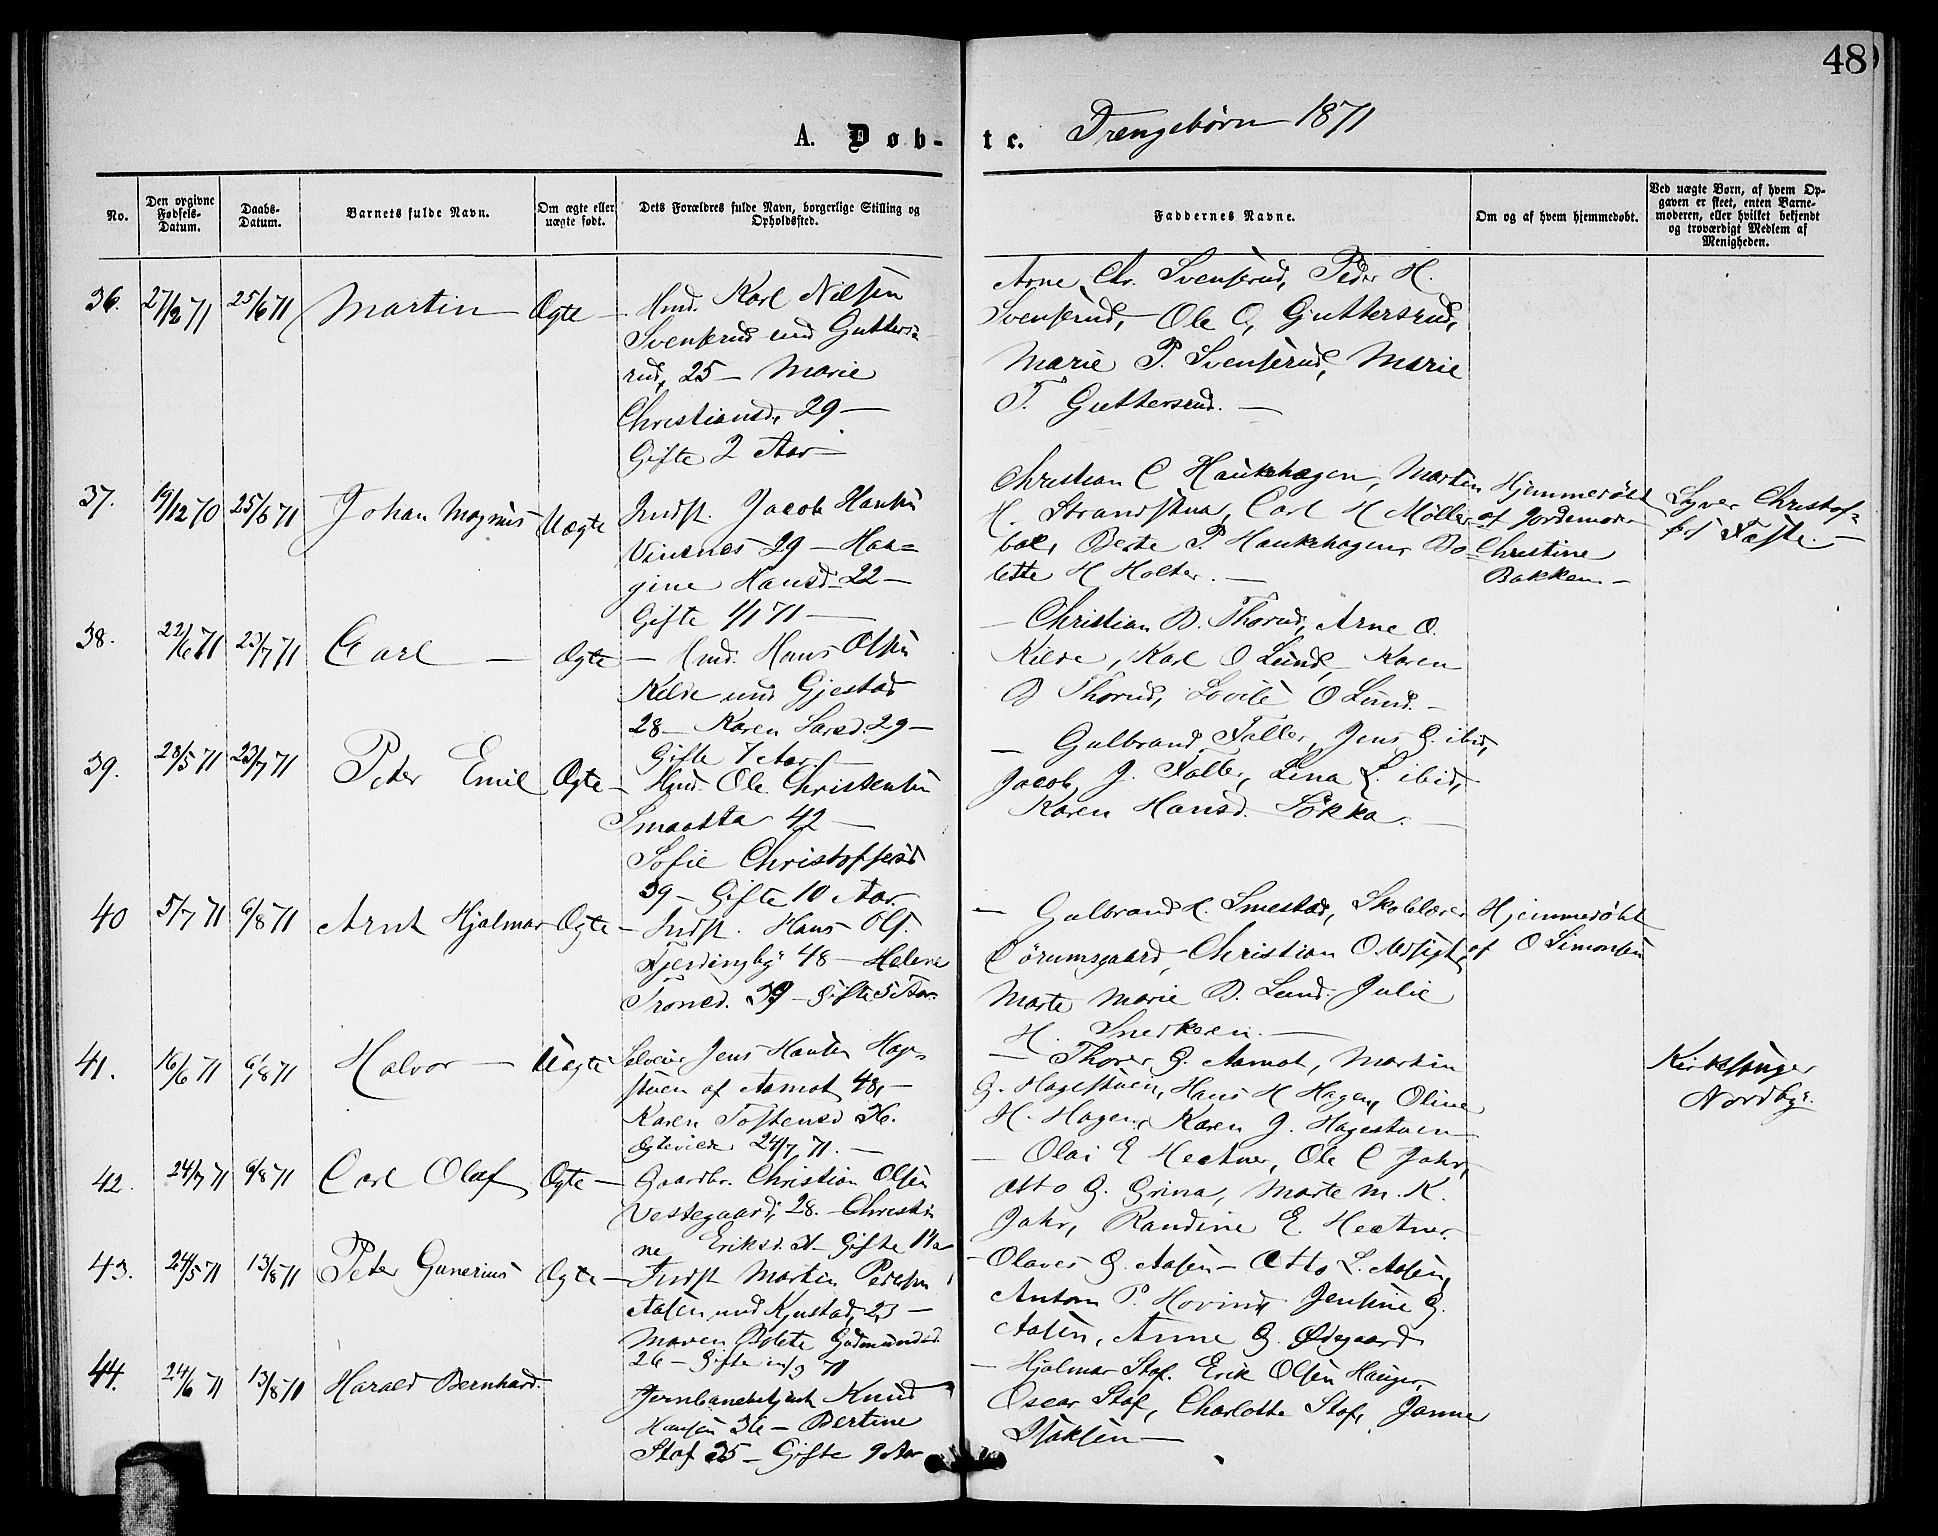 48
A. Døb-te. Drengebørn 1871
No.
Den opgivne Fødsels-Datum.
Daabs-Datum.
Barnets fulde Navn.
Om ægte eller uægte født.
Dets Forældres fulde Navn, borgerlige Stilling og Opholdssted.
Faddernes Navne.
Om og af hvem hjemmedøbt.
Ved uægte Børn, af hvem Opgaven er skeet, enten Barnemoderen, eller hvilket bekjendt og troværdigt Medlem af Menigheden.
36. 27/2 71 25/6 71 Martin Ægte
Hmd. Karl Nilsen
Svensrud und Gutters-
rud, 25 – Marie
Christiansd. 29 –
Gifte 2 Aar –
Arne Chr. Svensrud, Peder H.
Svensrud, Ole O. Guttersrud,
Marie P. Svensrud, Marie
T. Guttersrud. –
37. 19/12 70 25/6 71 Johan Magnus Uægte
Indst. Jacob Hansen
Vinenes 29 – Han-
gine Hansd. 22 –
Gifte 1/1 71 –
Christian C Haukehagen, Martin
H. Strandstua, Carl H Møller-
bak, Berte P. Haukehagen, Bo-
lette H Holter. –
Hjemmedøbt
af Jordemoder
Christine
Bakken –
Syver Christof-
fers Faste. –
38. 22/6 71 23/7 71 Carl – Ægte
– Hmd. Hans Olsen
Kilde und Gjestad
28 – Karen Larsd. 29 –
Gifte 7 Aar. –
– Christian D. Thorud, Arne O.
Kilde, Karl O Lund – Karen
D Thorud, Lovise O Lund. –
39. 28/5 71 23/7 71 Peter Emil Ægte
– Hmd. Ole Christensen
Smaatta 42 –
Sofie Christoffersd
39 – Gifte 10 Aar.
– Gulbrand Faller, Jens G. ibid,
Jacob J. Faller, Lina L. ibid,
Karen Hansd. Løkka. –
40 5/7 71 6/8 71 Arnt Hjalmar Ægte
– Indst. Hans Ols.
Fjerdingby 48 – Helene
Tronsd. 39 – Gifte 5 Aar
– Gulbrand H. Smestad, Skolelærer
Børumsgaard, Christian O
Marte Marie D. Lund. Julie
H. Snerkoen. –
Hjemmedøbt
af O Simonsen
41. 16/6 71 6/8 71 Halvor – Uægte
Selveier Jens Hansen Hage-
stuen af Aamot 48, –
Karen Tostensd 36.
Ægteviede 24/7 71. –
– Thorer G. Aamot, Martin
G. Hagestuen, Hans H Hagen, Oline
H. Hagen, Karen J. Hagestuen –
Kirkesanger
Nordby.
42. 24/7 71 6/8 71 Carl Olaf Ægte
– Gaardbr. Christian Olsen
Vestegaard, 28. – Christi
ne Eriksd. 21 – Gifte 1 Aar
– Olai E Hectner, Ole C Jahr,
Otto G. Grina, Marte M. K.
Jahr, Randine E. Hectner.
43. 24/5 71 13/8 71 Peter Gunerius Ægte
– Indst Martin Pedersen
Aasen und Kjustad, 23 –
Maren Bolete Gudmundsd
26 – Gifte 3 71
– Olaves G. Aasen – Otto L. Aasen,
Anton P. Hovind Jensine G.
Aasen, Anne G. Ødegaard
44. 24/6 71 13/8 71 Harald Bernhard.
Jernbanebetjent Knud
Hansen 36 – Bertine
Stof 35 – Gifte 9 Aar
– Hjalmar Stof. Erik Olsen Hauger,
Oscar Stof, Charlotte Stof, Janne
Isaksen –